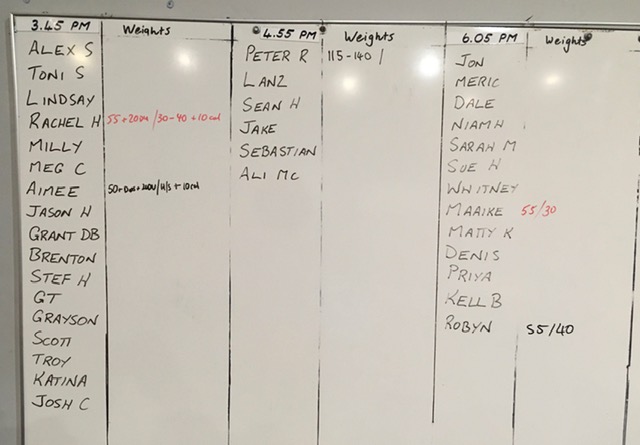 3.45 PM Weights
ALEX S
TONI S
LINDSAY
RACHEL H 55+20DU/30-40+10cal
MILLY
MEG C
AIMEE
JASON H
GRANT DB
BRENTON
STEF H
GT
GRAYSON
SCOTT
TROY
KATINA
JOSH C
4.55 PM Weights
PETER R 115-140/
LANZ
SEAN H
JAKE
SEBASTIAN
ALI MC
6.05 PM Weights
JON
MERIC
DALE
NIAMH
SARAH M
SUE H
WHITNEY
MAAIKE 55/30
MATTY K
DENIS
PRIYA
KELL B
ROBYN 55/40